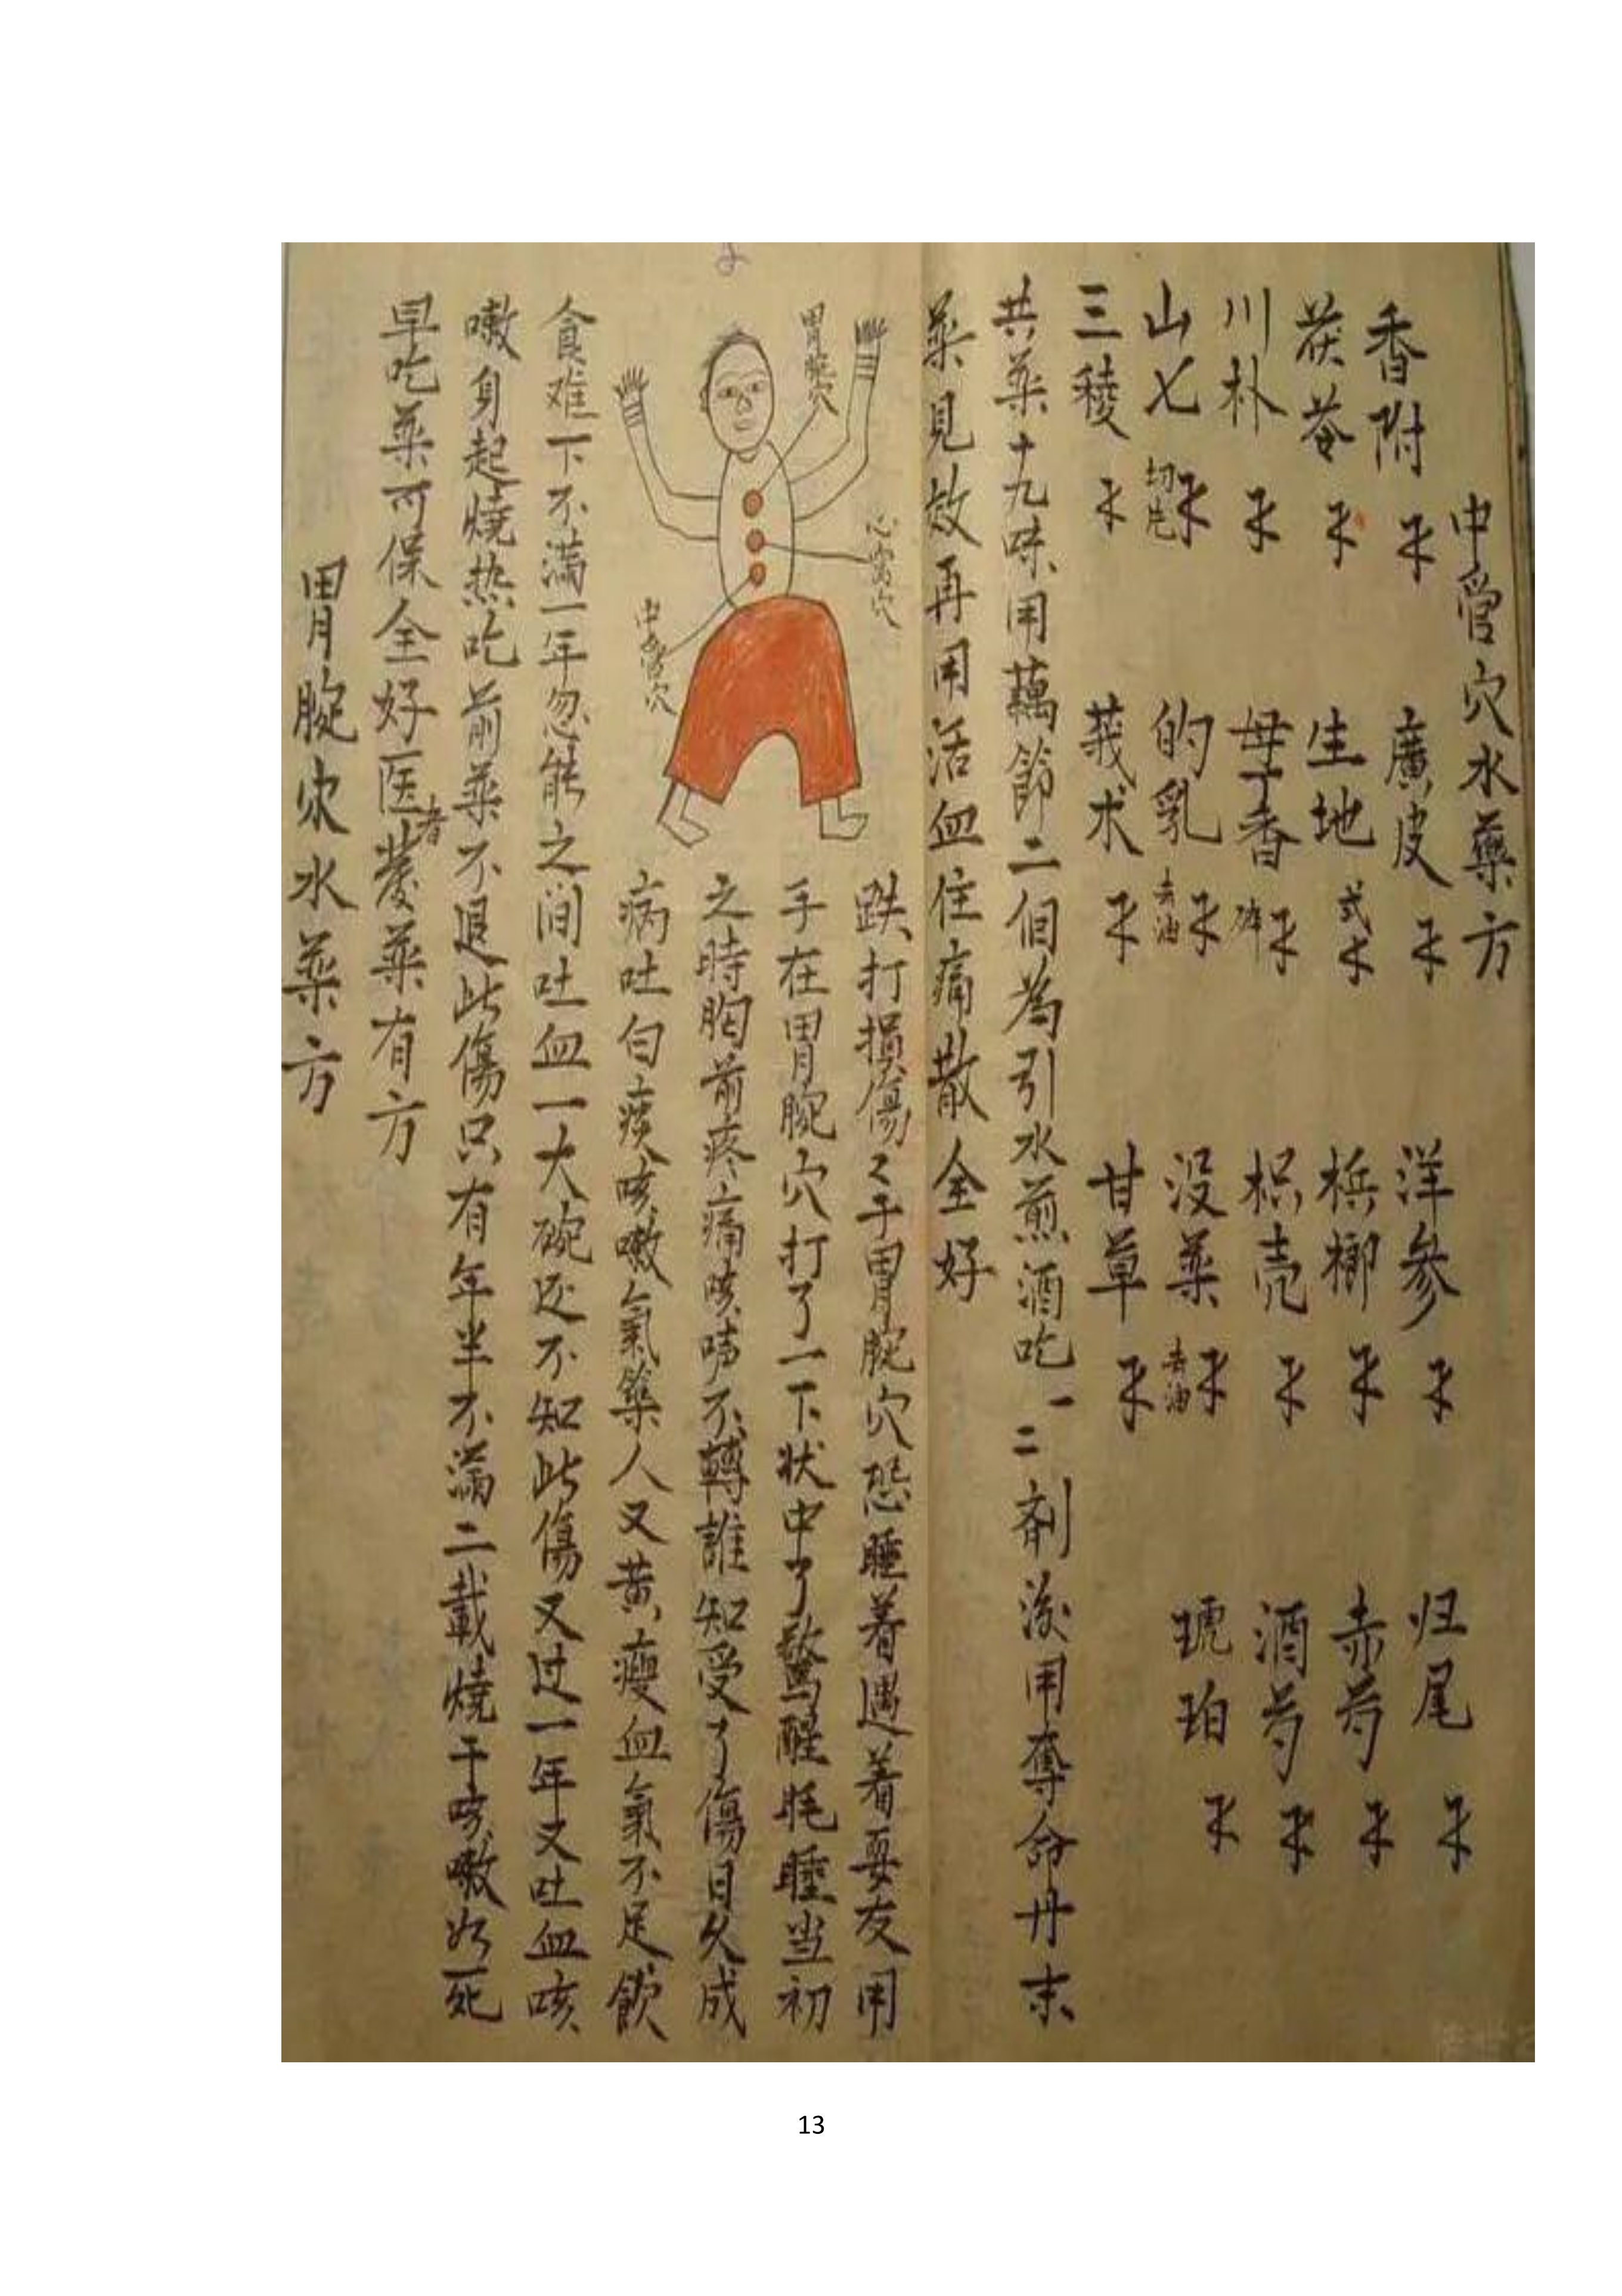 中管穴水藥方
香附 廣皮 洋參 归尾
茯苓 生地 梹榔 赤芍
川朴 母丁香 枳壳 酒芍
山七 切片 的乳 去油 没藥 去油 琥珀
三稜 莪术 甘草
共藥十九味用藕節二個為引水煎酒吃一二剤後用奪命丹末
藥見效再用活血住痛散全好
胃脘穴
心窝穴
中管穴
跌打損傷〻于胃脘穴恐睡着遇着耍友用
手在胃脘穴打了一下状中了驚醒眊睡当初
之時胸前疼痛咳嗽不轉誰知受了傷日久成
病吐白痰咳嗽氣築人又黄瘦血氣不足飲
食难下不满一年忽能之间吐血一大碗还不知此傷又过一年又吐血咳
嗽身起燒热吃前藥不退此傷只有年半不滿二載燒干咳嗽如死
早吃藥可保全好医者發藥有方
胃脘穴水藥方
13